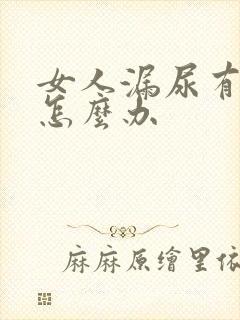 女人漏尿有
怎麼办
麻麻原繪里依